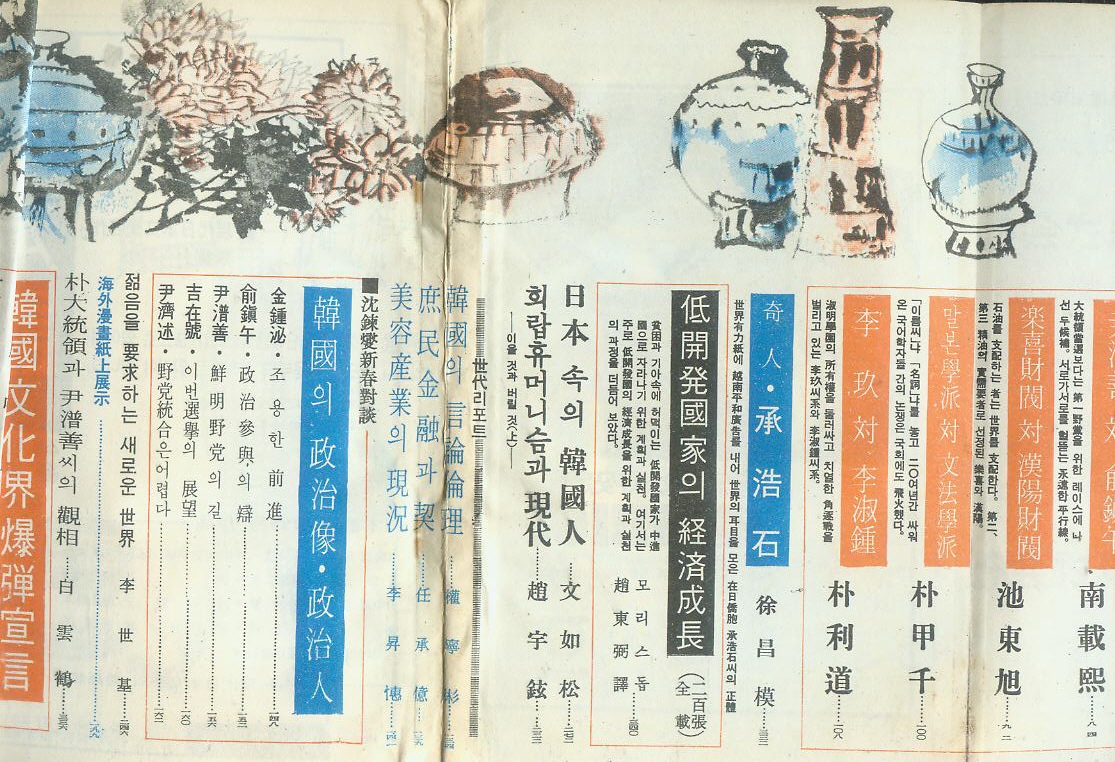 南載熙
八四
大統領當選보다는 第一野黨을 위한 레이스에 나
선 두候補。서로가서로를 헐뜯는 永遠한 平行線。
楽喜財閥 対 漢陽財閥
池東旭
九二
石油를 支配하는 者는 世界를 支配한다。第二、
第三 精油의 實需要者로 선정된 樂喜와 漢陽。
말본學派 対 文法學派
朴甲千
一00
「이름씨」냐 「名詞」냐를 놓고 二0여년간 싸워
온 국어학자들 간의 논쟁은 국회에도 飛火했다。
李玖 対 李淑鍾
朴利道
一0八
淑明學園의 所有權을 둘러싸고 치열한 角逐戰을
벌리고 있는 李玖씨系와 李淑鍾씨系。
奇人・承浩石
徐昌模
世界有力紙에 越南平和廣告를 내어 世界의 耳目을 모은 在日僑胞 承浩石씨의 正體
低開発國家의 経済成長
(二百張全載)
貧困과 기아속에 허덕이는 低開發國家가 中進
國으로 자라나기 위한 계획과 실천。여기서는
주로 低開發國의 經濟成長을 위한 계획과 실천
의 과정을 더듬어 보았다。
모리스 돕
趙東弼 譯
日本 속의 韓國人
文如松
희랍휴머니슴과 現代
趙宇鉉
──이을 것과 버릴 것〈上〉──
世代리포트
韓國의 言論倫理
權寧彬
庶民金融과 契
任承億
美容産業의 現況
李昇
■沈鍊燮新春對談
韓國의 政治像・政治人
金鍾泌・조용한 前進
兪鎭午・政治參與의 辯
尹潽善・鮮明野党의 길
吉在號・이번選擧의 展望
尹濟述・野党統合은어렵다
젊음을 要求하는 새로운 世界
李世基
海外漫畫紙上展示
朴大統領과 尹潽善씨의 觀相
白雲鶴
韓國文化界爆弾宣言